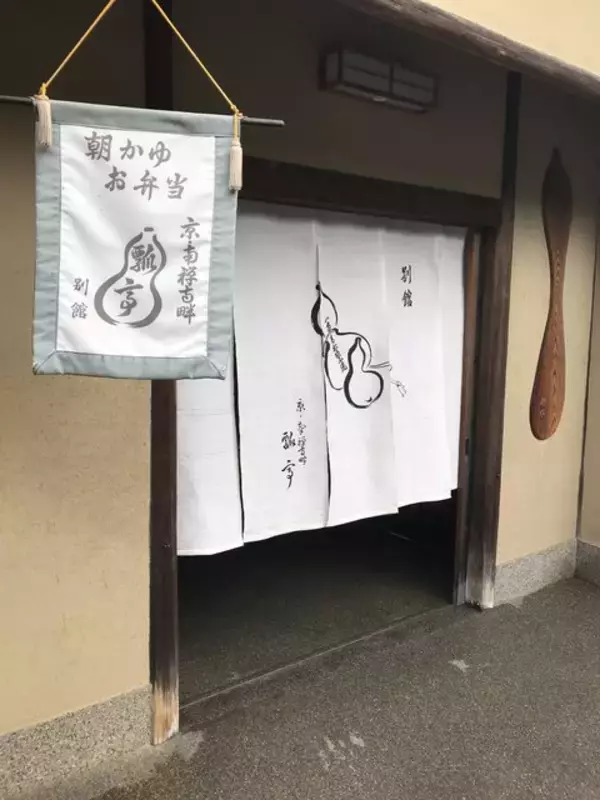 朝かゆ
お弁当
京・南禅寺畔
瓢亭
別館
別館
京・南禅寺畔
瓢亭